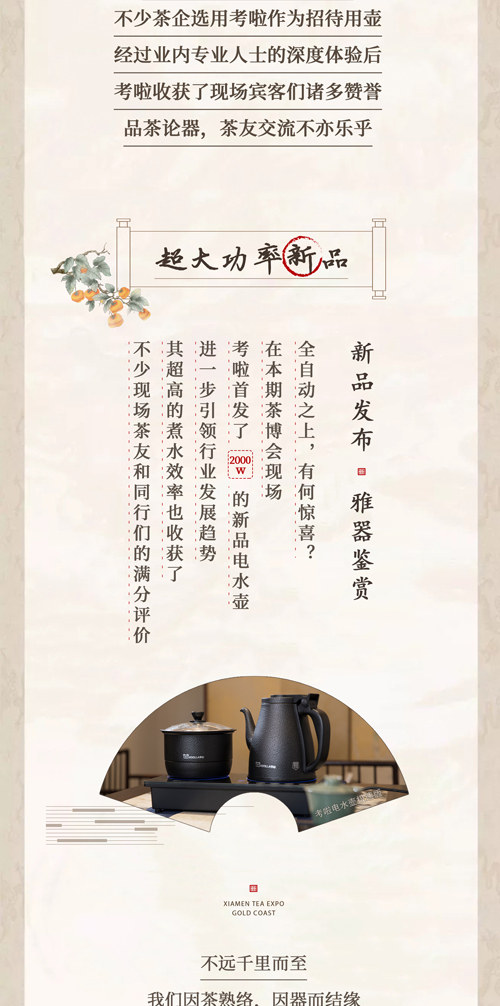 不少茶企选用考啦作为招待用壶
经过业内专业人士的深度体验后
考啦收获了现场宾客们诸多赞誉
品茶论器，茶友交流不亦乐乎
超大功率新品
新品发布 雅器鉴赏
全自动之上，有何惊喜？
在本期茶博会现场
考啦首发了2000W的新品电水壶
进一步引领行业发展趋势
其超高的煮水效率也收获了
不少现场茶友和同行们的满分评价
XIAMEN TEA EXPO
GOLD COAST
不远千里而至
我们因茶熟络，因器而结缘